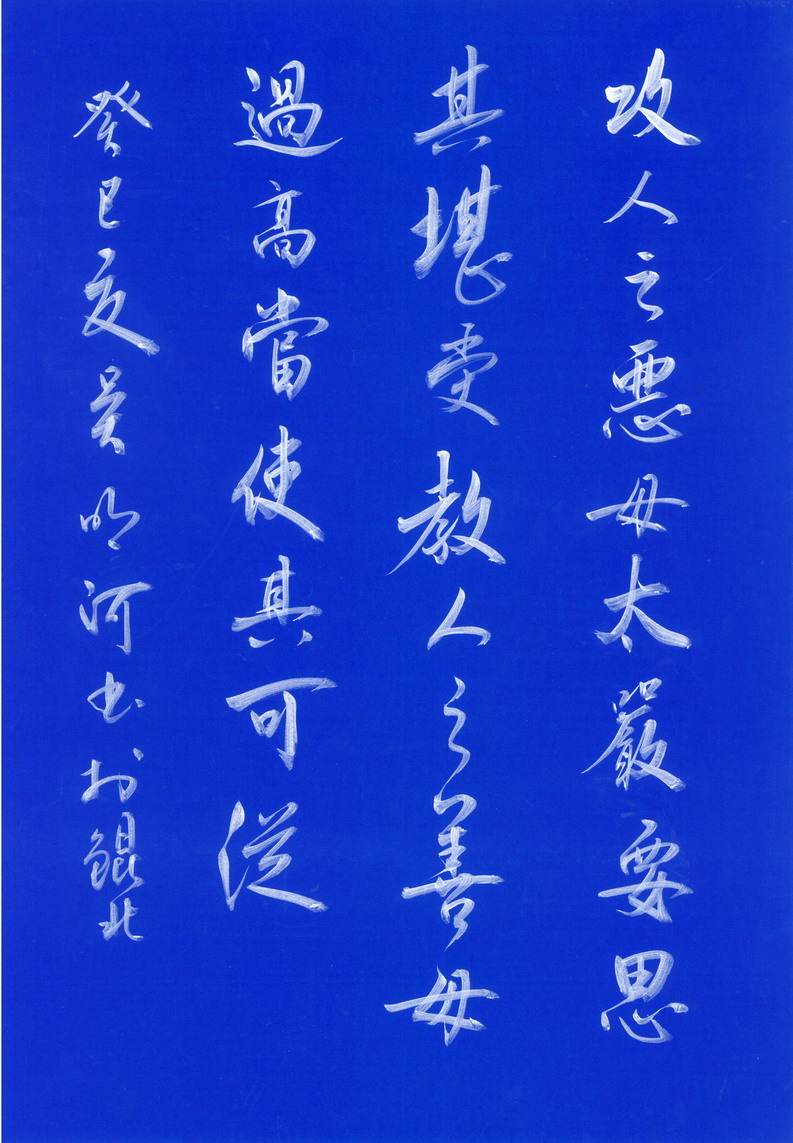 攻人之惡毋太嚴要思
其堪受教人之善毋
過高當使其可從
癸巳夏吳明河书於錕北